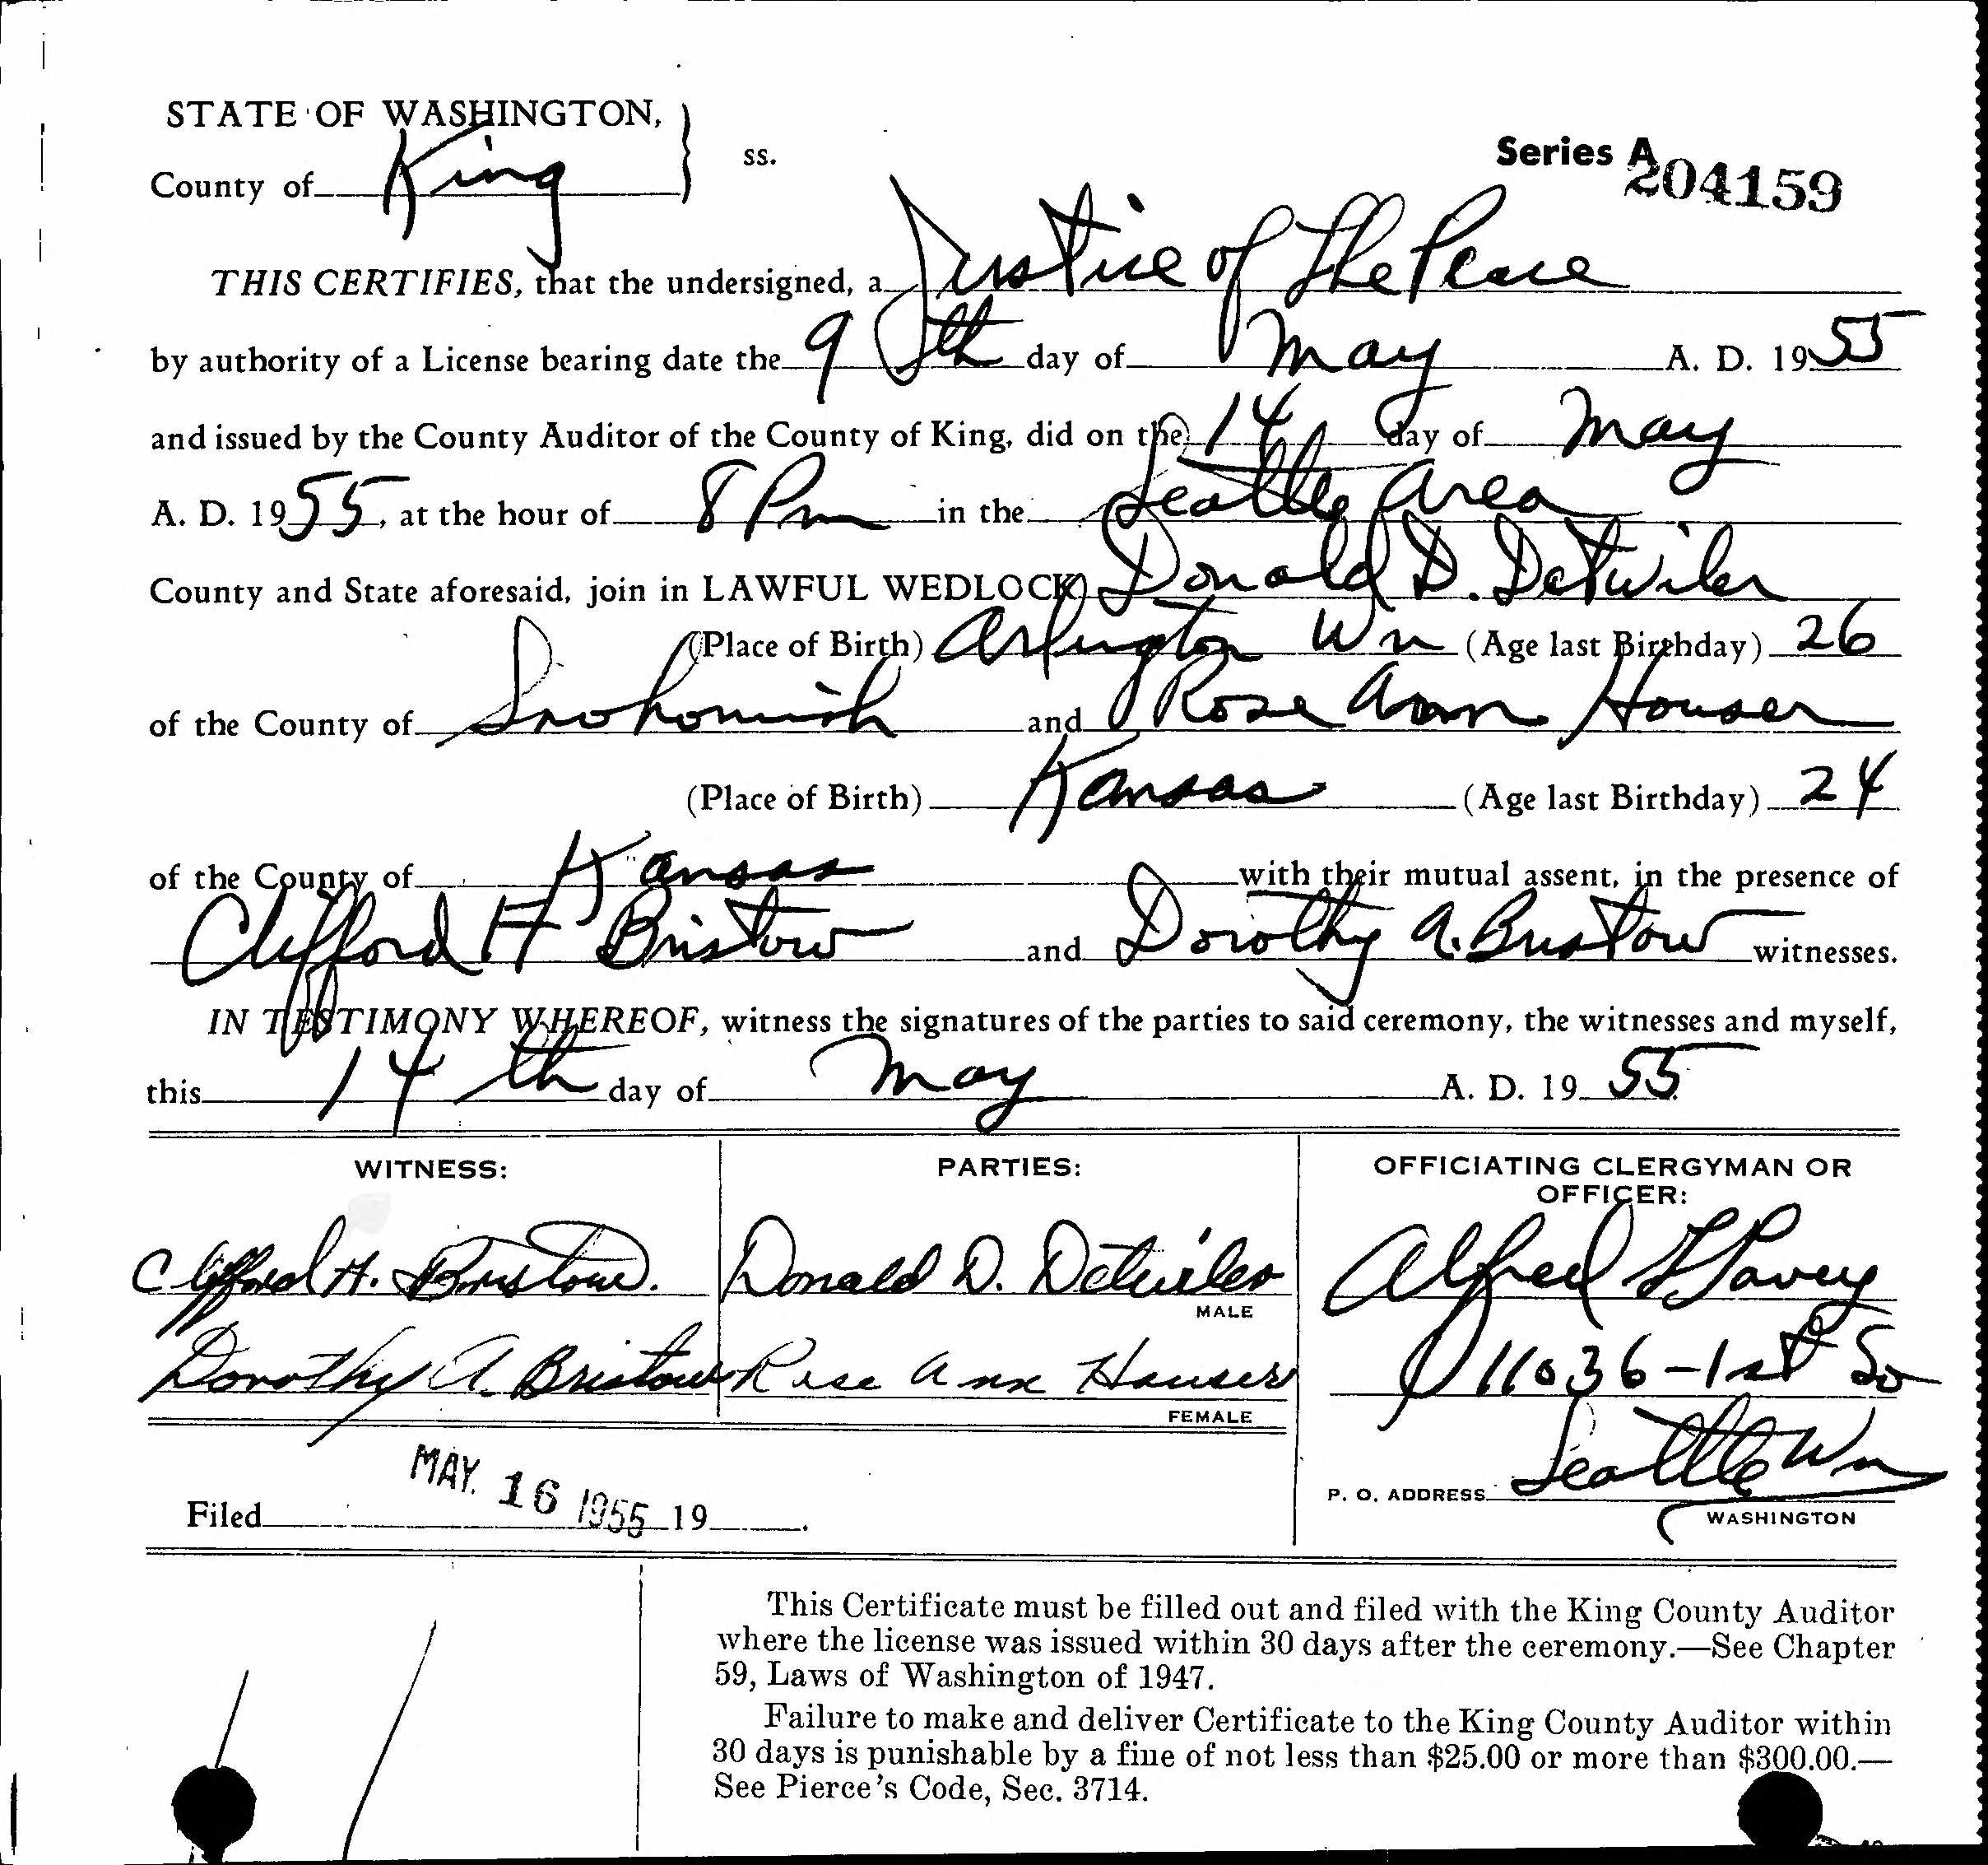 STATE OF WASHINGTON,
County of King ss.
Series A 204159
THIS CERTIFIES, that the undersigned, a Justice of The Peace
by authority of a License bearing date the 9 th day of May A. D. 1955
and issued by the County Auditor of the County of King, did on the 14 day of May
A. D. 1955, at the hour of 8 Pm in the Seattle Area
County and State aforesaid, join in LAWFUL WEDLOCK Donald D. Detwiler
(Place of Birth) Arlington Wn (Age last Birthday) 26
of the County of Snohomish and Rose Ann Houser
(Place of Birth) Kansas (Age last Birthday) 24
of the County of Kansas with their mutual assent, in the presence of
Clifford H Bristow and Dorothy A. Bristow witnesses.
IN TESTIMONY WHEREOF, witness the signatures of the parties to said ceremony, the witnesses and myself,
this 14 th day of May A. D. 19 55
WITNESS: PARTIES: OFFICIATING CLERGYMAN OR
OFFICER:
Clifford H. Bristow. Donald D. Detwiler Alfred
MALE
Dorothy A. Bristow Rose Ann Hauser 11036-1st So
FEMALE
Seattle Wn
P. O. ADDRESS
WASHINGTON
MAY. 16 1955
Filed 19 .
This Certificate must be filled out and filed with the King County Auditor
where the license was issued within 30 days after the ceremony.—See Chapter
59, Laws of Washington of 1947.
Failure to make and deliver Certificate to the King County Auditor within
30 days is punishable by a fine of not less than $25.00 or more than $300.00.—
See Pierce's Code, Sec. 3714.